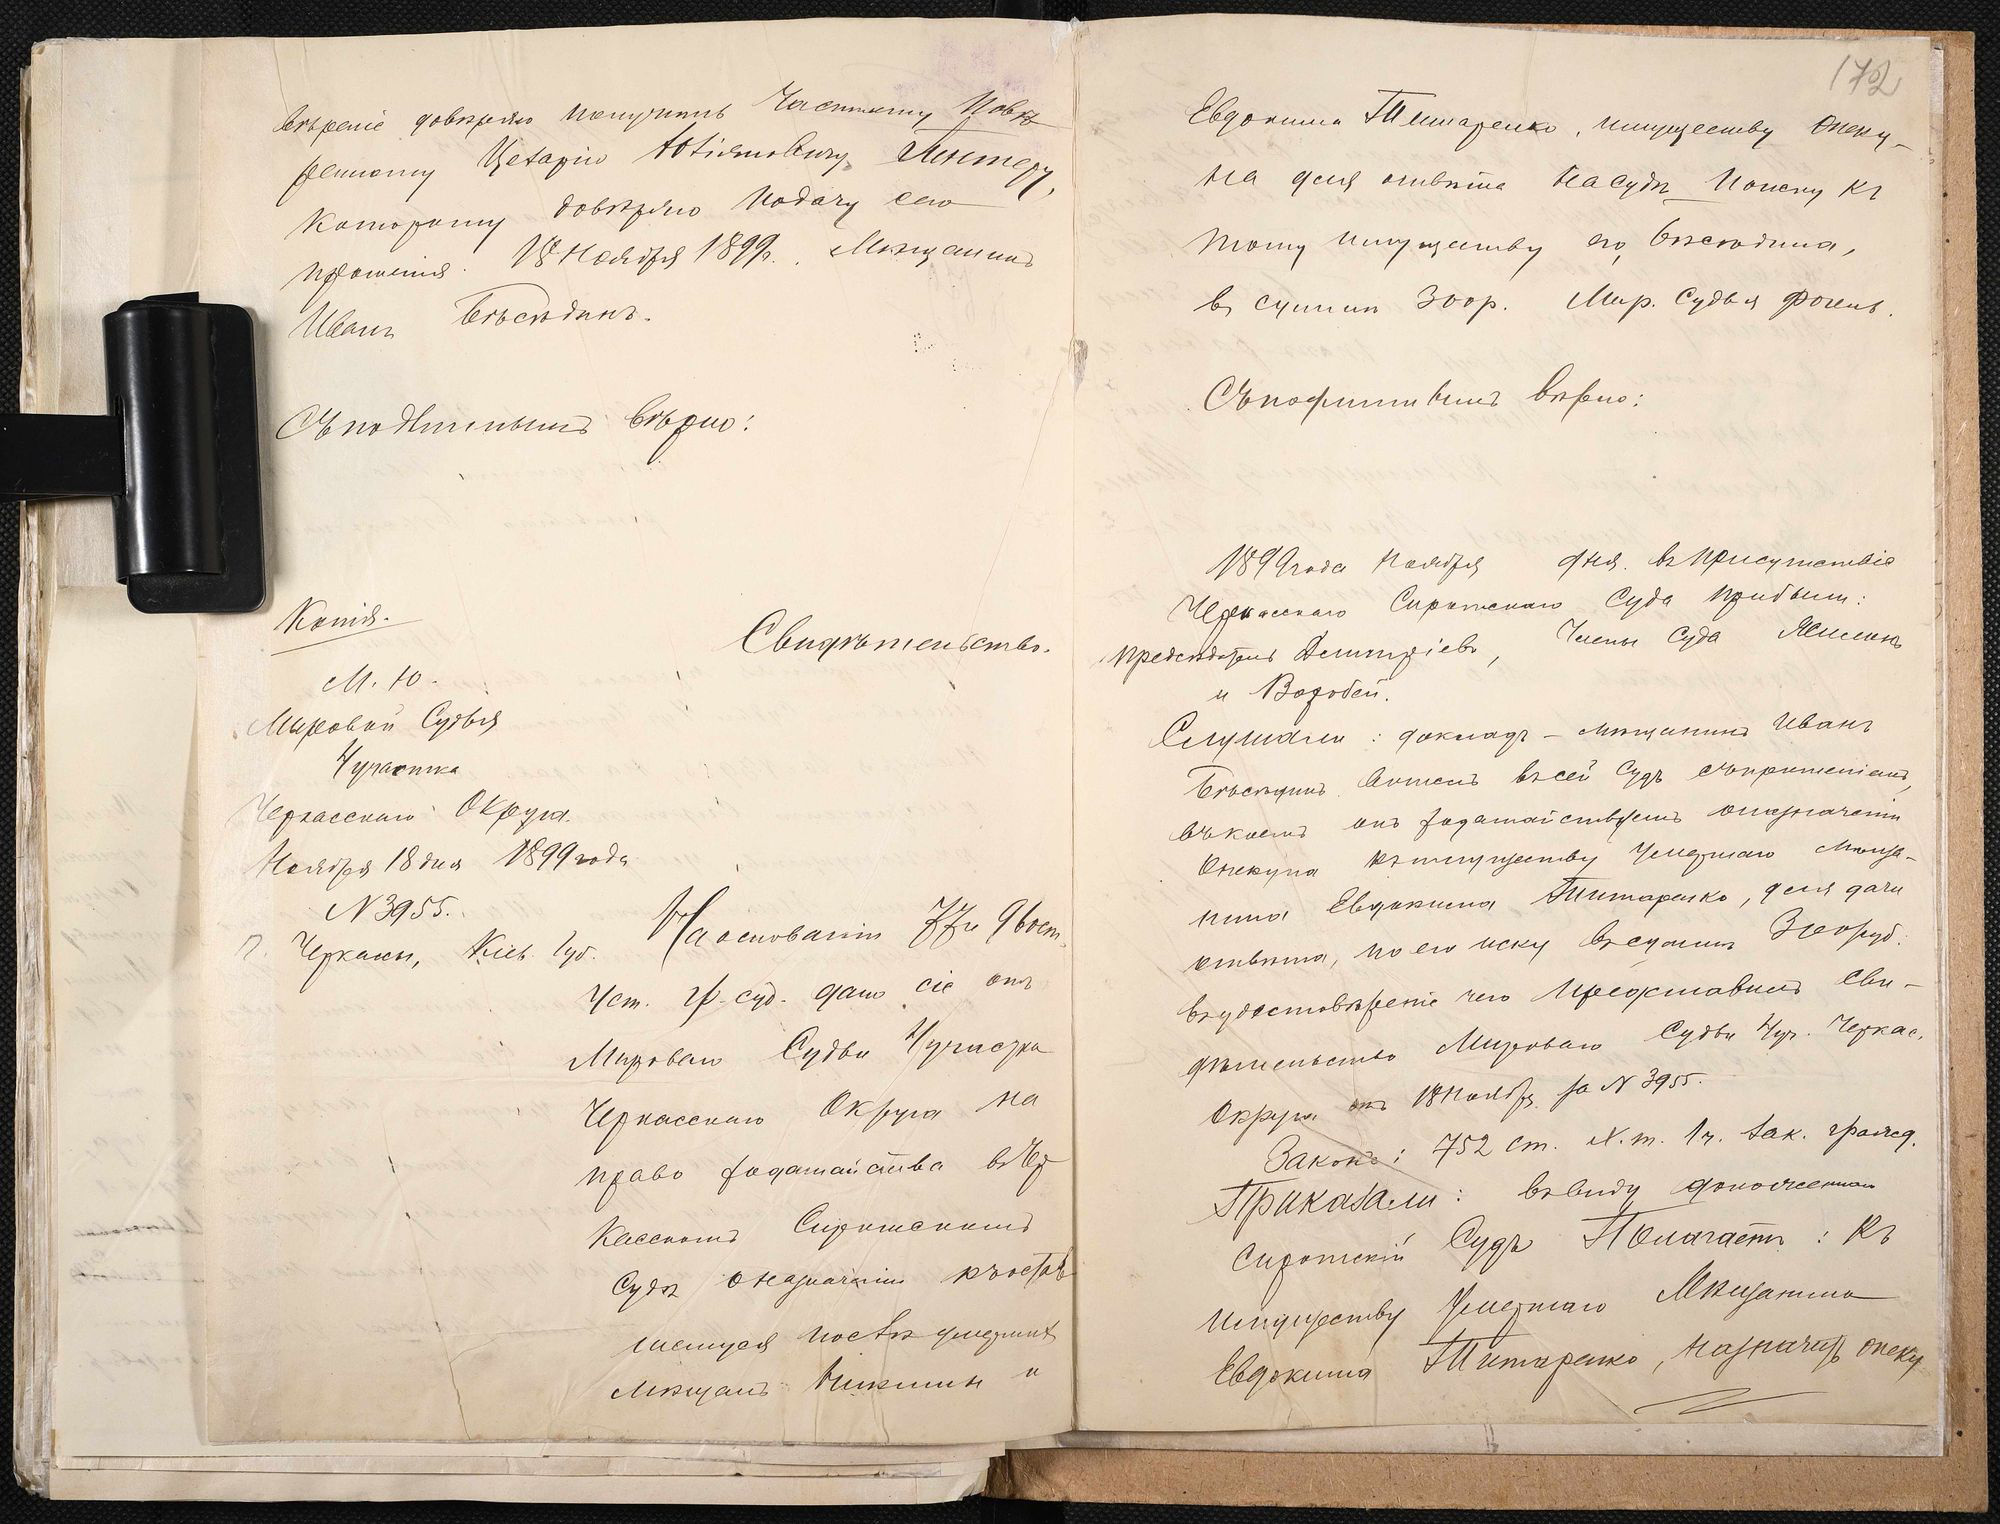 вѣреніе довѣряю получить Частному Повѣ
ренному Цезарію Пюнтеру,
которому довѣряю подачу сего
прошенія. 18 Ноября 1899 г. Мѣщанинъ
Иванъ Бѣсѣдинъ.
Съ подлиннымъ вѣрно:
Копія.
Свидѣтельство.
М. Ю.
Мировой Судья
4 участка
Черкасскаго Округа.
Ноября 18 дня 1899 года
N 3955.
г. Черкасы, Кіев. Губ.
На основаніи 77 и 9
Уст. гр. суд. дано сіе отъ
Мироваго Судьи 4 участка
Черкасскаго Округа на
право ходатайства въ Чер
касскомъ Сиротскомъ
Судѣ о назначеніи къ остав
шемуся послѣ умершихъ
мѣщанъ Никиты и
172
Евдокима Титаренко, имуществу опеку-
на для отвѣта на судѣ по иску къ
тому имуществу его, Бѣсѣдина,
въ суммѣ 300 р. Мир. Судья
Съ подлиннымъ вѣрно:
1899 года Ноября дня. въ присутствіе
Черкасскаго Сиротскаго Суда прибыли:
Предсѣдатель Дмитріевъ, Члены Суда
и Воробей.
Слушали: докладъ – мѣщанинъ Иванъ
Бѣсѣдинъ вошелъ въ сей Судъ съ прошеніемъ,
въ коемъ онъ ходатайствуетъ о назначеніи
опекуна къ имуществу умершаго мѣща-
нина Евдокима Титаренко, для дачи
отвѣта, по его иску въ суммѣ 300 руб.
въ удостовѣреніе чего представилъ сви-
дѣтельство Мироваго Судьи 4 уч. Черкас.
Округа отъ 18 Ноября за N 3955.
Законъ: 752 ст. X. т. 1 ч. Зак. гражд.
Приказали: въ виду доложеннаго
Сиротскій Судъ Полагаетъ: Къ
имуществу умершаго Мѣщанина
Евдокима Титаренко, назначить опеку